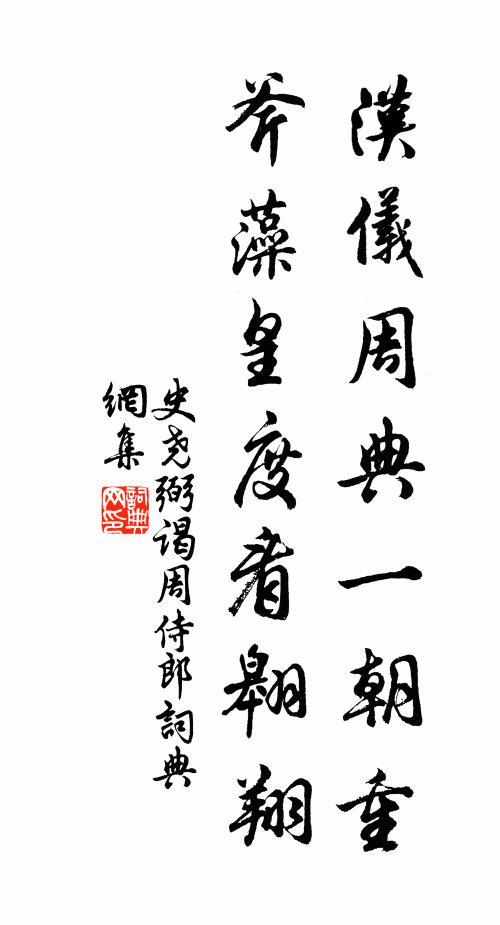 漢儀周典一朝重
斧藻皇度看翱翔
史尧弼谒周侍郎詞典
網集
詞典網印